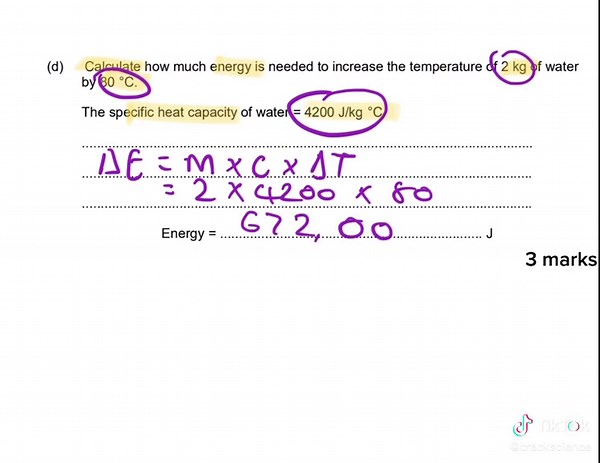 (d) Calculate how much energy is needed to increase the temperature of 2 kg of water
by 80 °C.
The specific heat capacity of water = 4200 J/kg °C
ΔE = M x C x ΔT
= 2 x 4200 x 80
Energy = 672,00 J
3 marks
TikTok
@crackscience